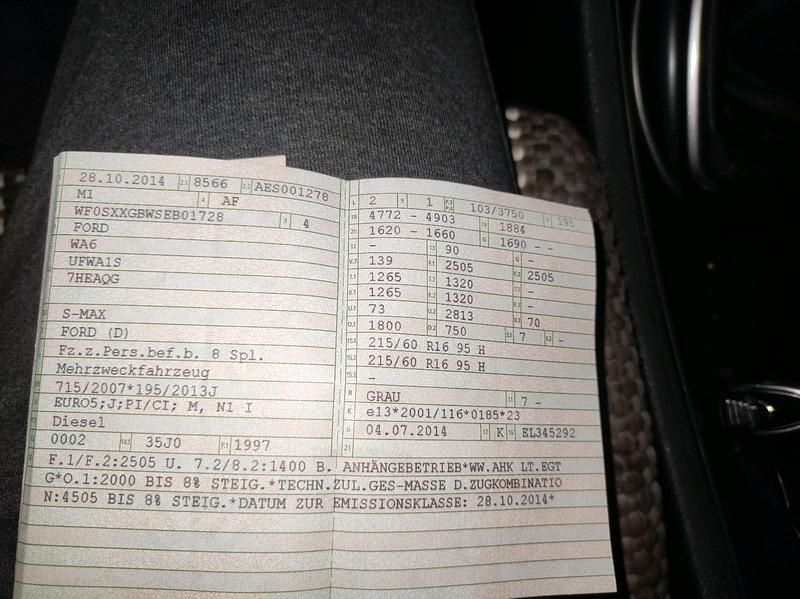 28.10.2014 2.1 8566 2.2 AES001278
M1 4 AF
WF0SXXGBWSEB01728 3 4
FORD
WA6
UFWA1S
7HEAQG
S-MAX
FORD (D)
Fz.z.Pers.bef.b. 8 Spl.
Mehrzweckfahrzeug
715/2007*195/2013J
EURO5;J;PI/CI; M, N1 I
Diesel
0002 14.1 35J0 P.1 1997
L 2 9 1 P.2 P.4 103/3750 T 195
18 4772 - 4903 19 1884
20 1620 - 1660 G 1690 - -
12 - 13 90 Q -
V.7 139 F.1 2505 F.2 2505
7.1 1265 7.2 1320 7.3 -
8.1 1265 8.2 1320 8.3 -
U.1 73 U.2 2813 U.3 70
O.1 1800 O.2 750 S.1 7 S.2 -
15.1 215/60 R16 95 H
15.2 215/60 R16 95 H
15.3 -
R GRAU 11 7 -
K e13*2001/116*0185*23
6 04.07.2014 17 K 16 EL345292
21
F.1/F.2:2505 U. 7.2/8.2:1400 B. ANHÄNGEBETRIEB*WW.AHK LT.EGT
G*O.1:2000 BIS 8% STEIG.*TECHN.ZUL.GES-MASSE D.ZUGKOMBINATIO
N:4505 BIS 8% STEIG.*DATUM ZUR EMISSIONSKLASSE: 28.10.2014*